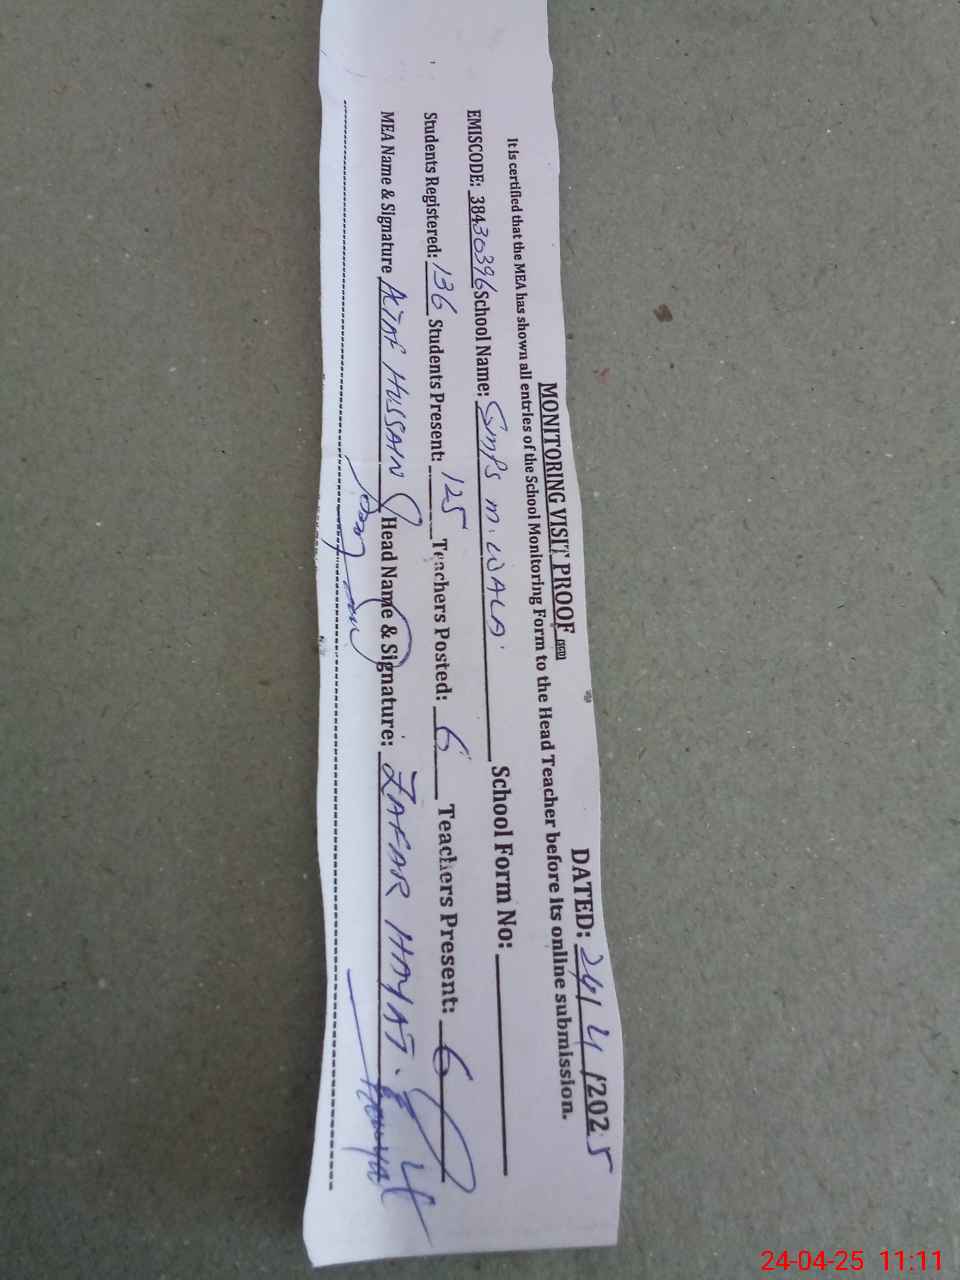 MONITORING VISIT PROOF
DATED: 24/4/2025
It is certified that the MEA has shown all entries of the School Monitoring Form to the Head Teacher before its online submission.
EMISCODE: 38430396 School Name: GMPS M. WALA. School Form No:
Students Registered: 136 Students Present: 125 Teachers Posted: 6 Teachers Present: 6
MEA Name & Signature ALTAF HUSSAIN Head Name & Signature: ZAFAR HAYAT.
24-04-25 11:11